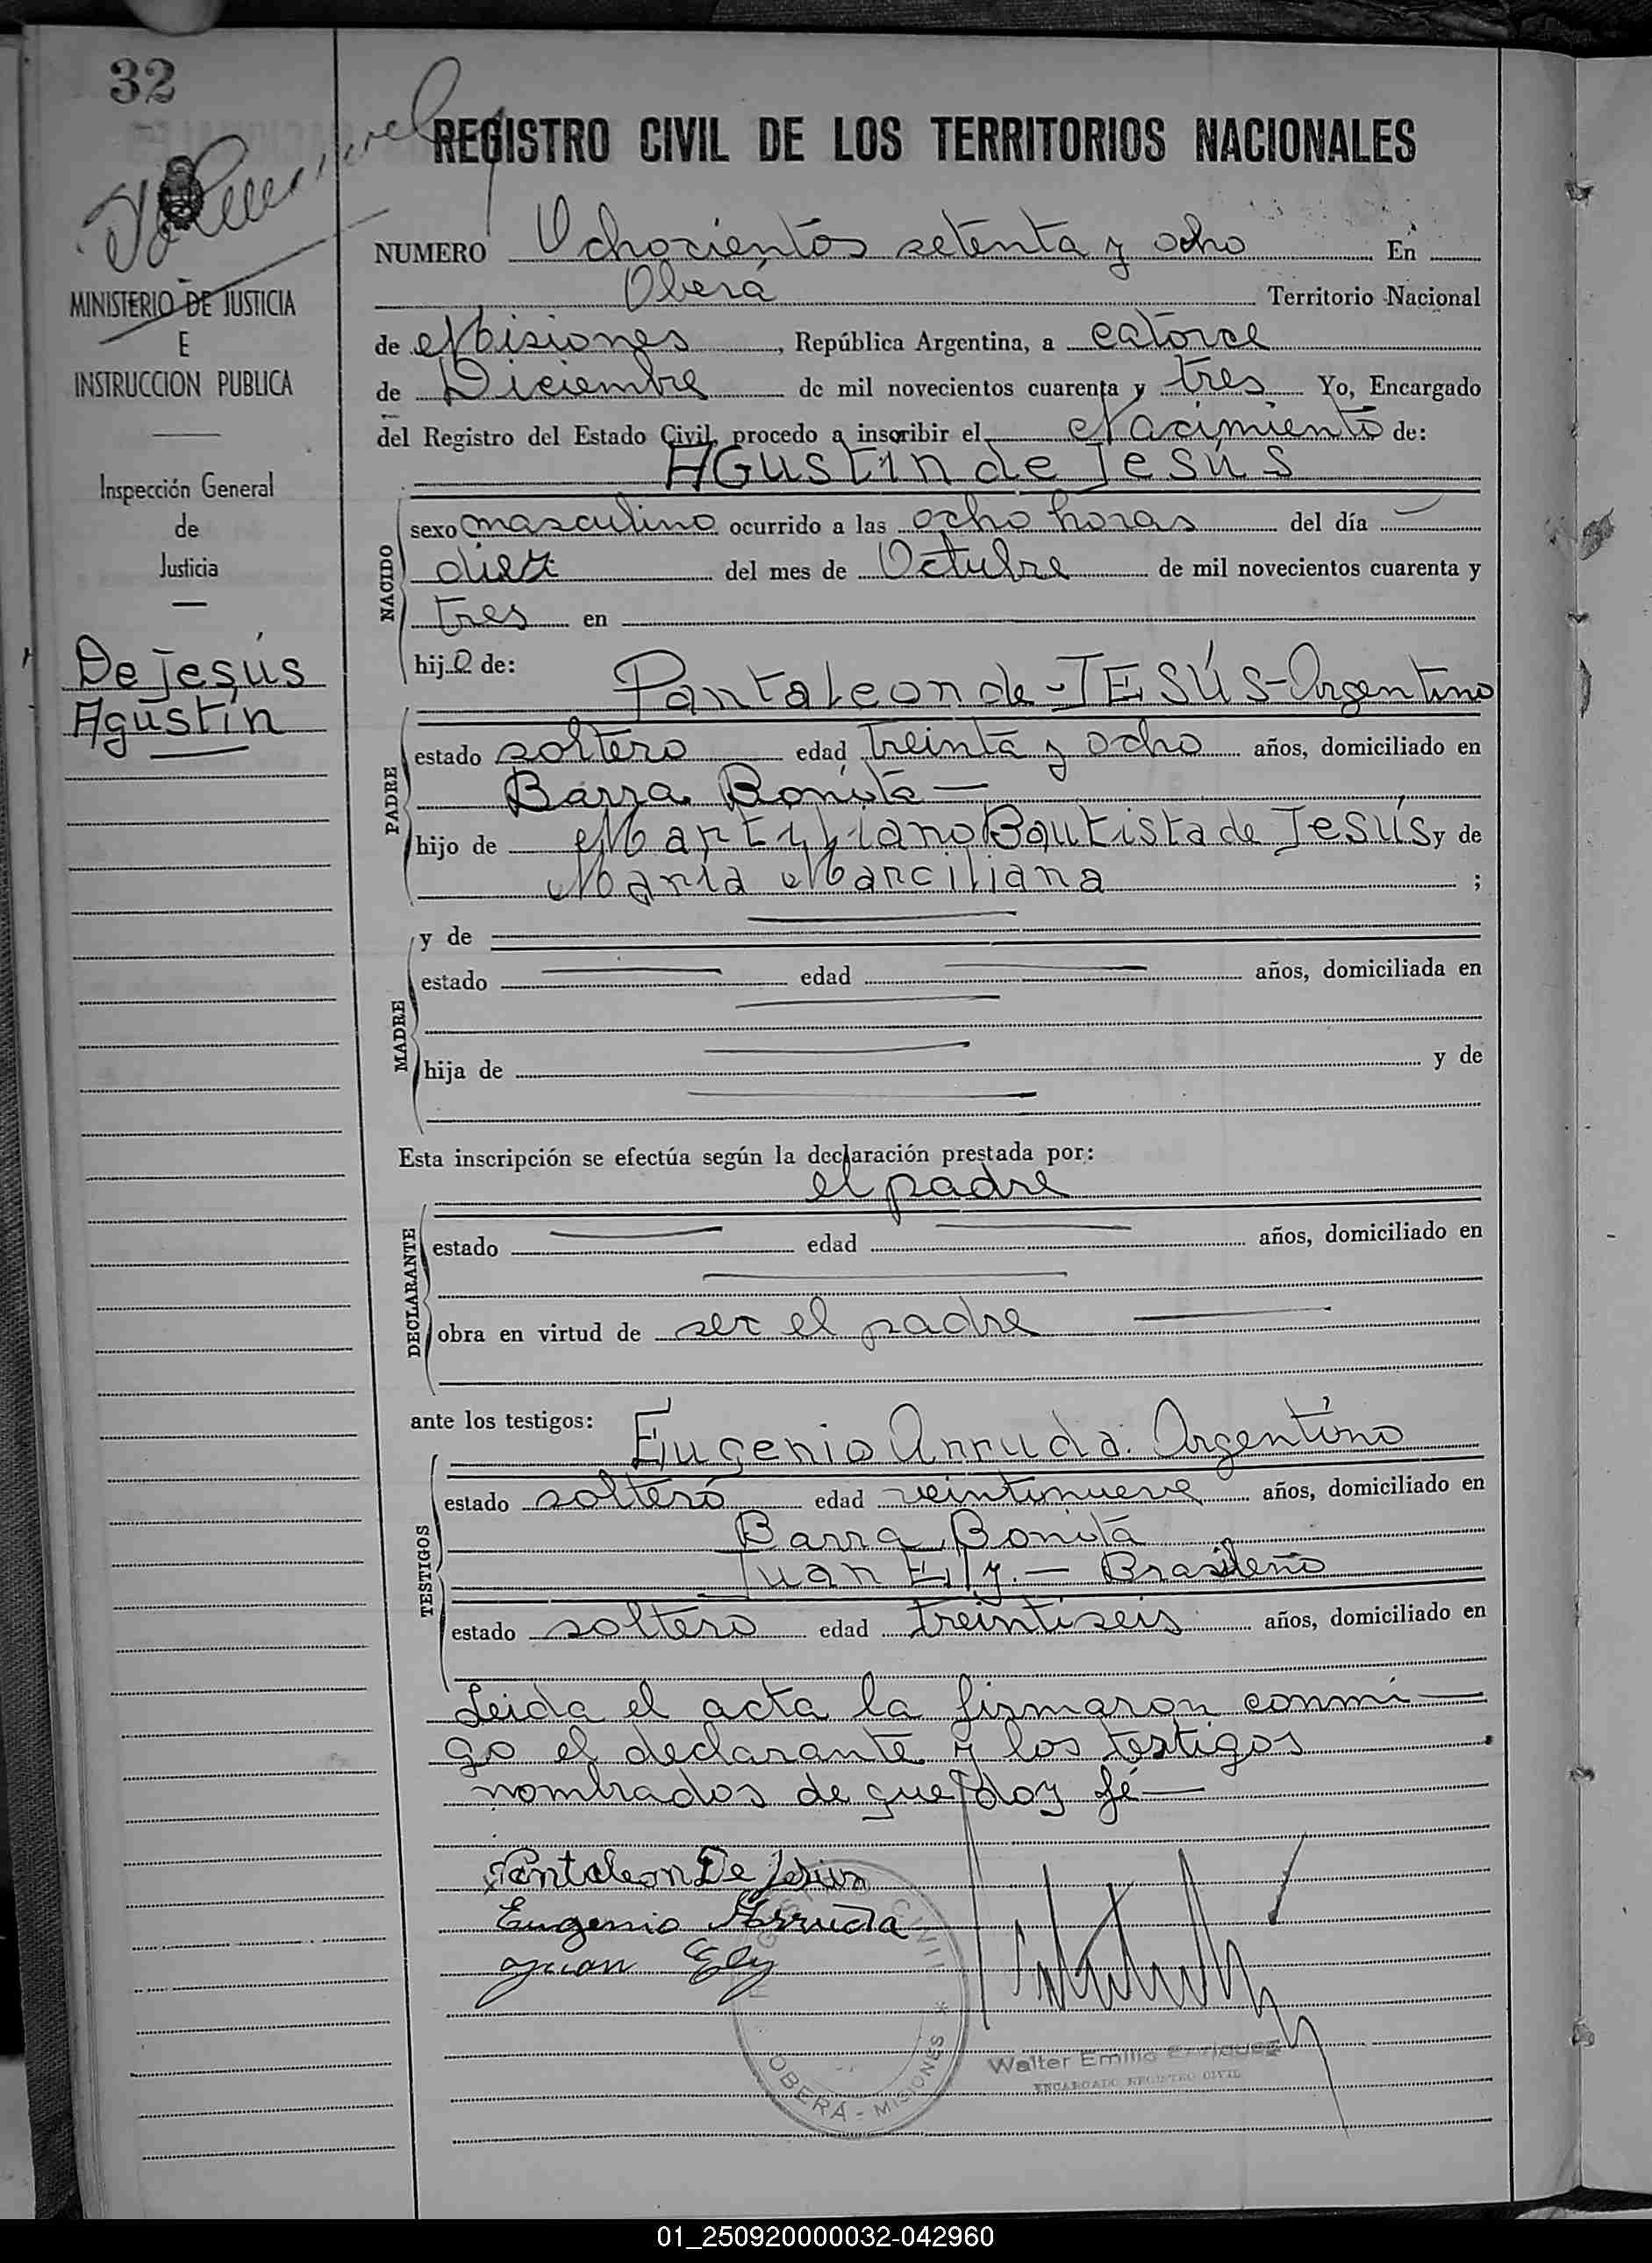 32
REGISTRO CIVIL DE LOS TERRITORIOS NACIONALES
NUMERO Ochocientos setenta y ocho En
Oberá Territorio Nacional
MINISTERIO DE JUSTICIA
E
INSTRUCCION PUBLICA
de Misiones, República Argentina, a catorce
de Diciembre de mil novecientos cuarenta y tres Yo, Encargado
del Registro del Estado Civil, procedo a inscribir el Nacimiento de:
AGustin de Jesús
Inspección General
de
Justicia
NACIDO
sexo masculino ocurrido a las ocho horas del día
diez del mes de Octubre de mil novecientos cuarenta y
tres en
hijo de:
De Jesús
Agustín
Pantaleon de-JESÚS-Argentino
PADRE
estado soltero edad treinta y ocho años, domiciliado en
Barra Bonita —
hijo de Bautista de Jesús y de
María Marciliana ;
MADRE
y de
estado edad años, domiciliada en
hija de y de
Esta inscripción se efectúa según la declaración prestada por:
el padre
DECLARANTE
estado edad años, domiciliado en
obra en virtud de ser el padre
ante los testigos:
Eugenio Arruda. Argentino
TESTIGOS
estado soltero edad veintinueve años, domiciliado en
Barra Bonita
Juan Ely. — Brasileño
estado soltero edad treintiseis años, domiciliado en
Leida el acta la firmaron conmi—
go el declarante y los testigos
nombrados de que doy fé—
Pantaleon De Jesus
Eugenio Arruda
Juan Ely
CIVIL
OBERÁ - MISIONES *
Walter Emilio Enriquez
ENCARGADO REGISTRO CIVIL
01_250920000032-042960